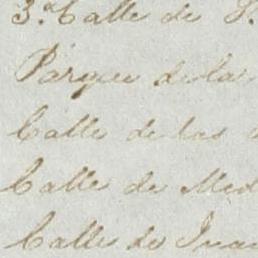 3.ª Calle de S.
Parque de la
Calle de las
Calle de Med
Calle de Jua